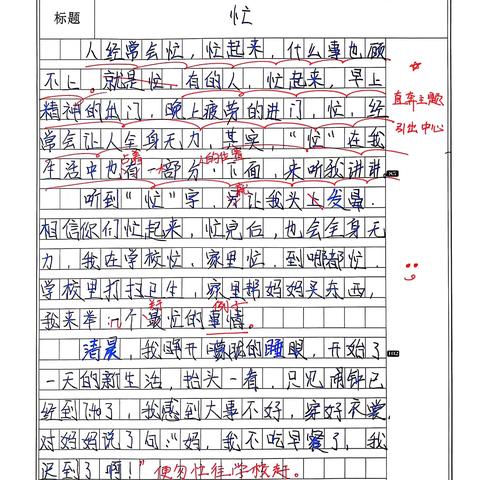 标题
忙
人经常会忙，忙起来，什么事也顾
不上。就是忙，有的人，忙起来，早上
直奔主题
精神的出门，晚上疲劳的进门，忙，经
引出中心
常会让人全身无力，其实，“忙”在我
占着 的位置
生活中也有一部分，下面，来听我讲讲
听到“忙”字，只让我头上发晕，
相信你们忙起来，忙完后，也会全身无
力，我在学校忙，家里忙，到哪都忙，
学校里打扫卫生，家里帮妈妈买东西，
例子
我来举几个最忙的事情。
清晨，我睁开朦胧的睡眼，开始了
一天的新生活，抬头一看，只见闹钟已
经到了，我感到大事不好，穿好衣裳，
对妈妈说了句：“妈，我不吃早餐了，我
迟到了啊！”便匆忙往学校赶。